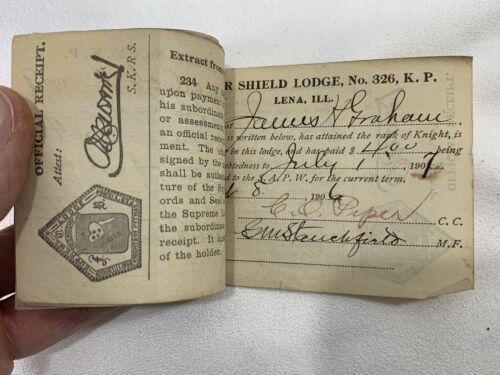 OFFICIAL RECEIPT.
Attest:
S.K.R.S.
Extract from
234 Any
upon payment
his subordinate
or assessments
an official receipt
ment. The
signed by the
shall be authe
ture of the Sup
ords and Seal
the Supreme
the subordinate
receipt. It
of the holder.
R SHIELD LODGE, No. 326, K. P.
LENA, ILL.
James H Graham
is written below, has attained the rank of Knight,
in this lodge, and has paid $ 4.00 being
btedness to July 1 1907
ed the S. A. P. W. for the current term.
8 1906
C. O. Piper C. C.
M. F.